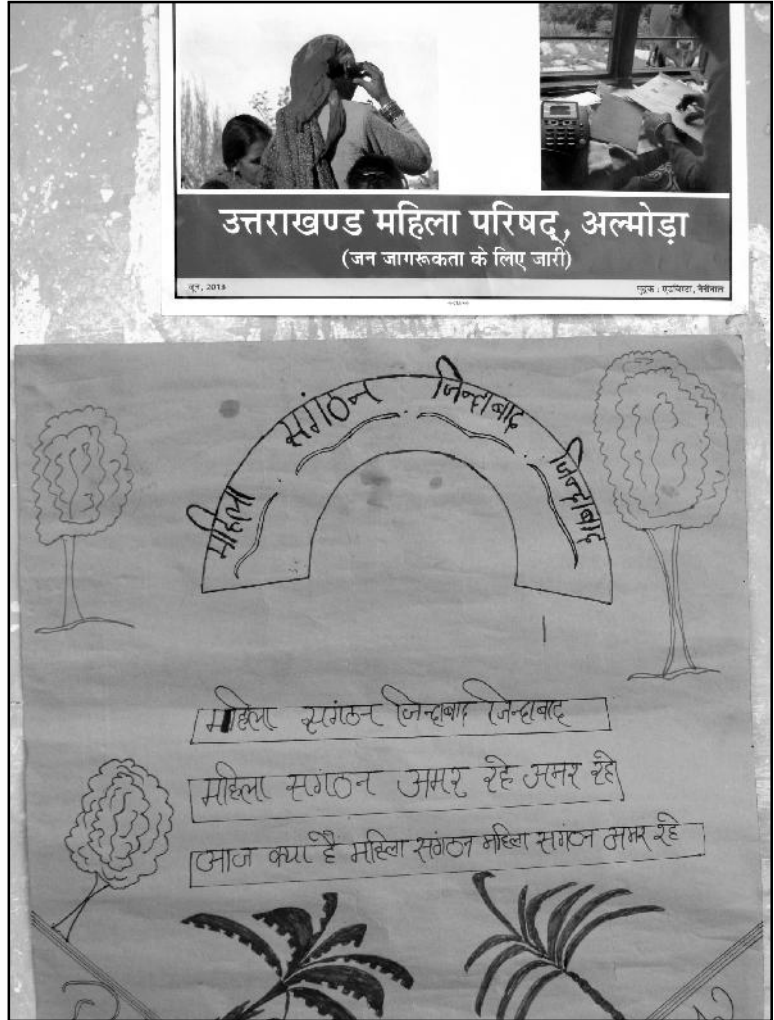 उत्तराखण्ड महिला परिषद्, अल्मोड़ा
(जन जागरूकता के लिए जारी)
जून, 2013
मुद्रक : एडविस्टा, नैनीताल
महिला संगठन जिन्दाबाद जिन्दाबाद
महिला संगठन जिन्दाबाद जिन्दाबाद
महिला संगठन अमर रहे अमर रहे
आज क्या है महिला संगठन महिला संगठन अमर रहे